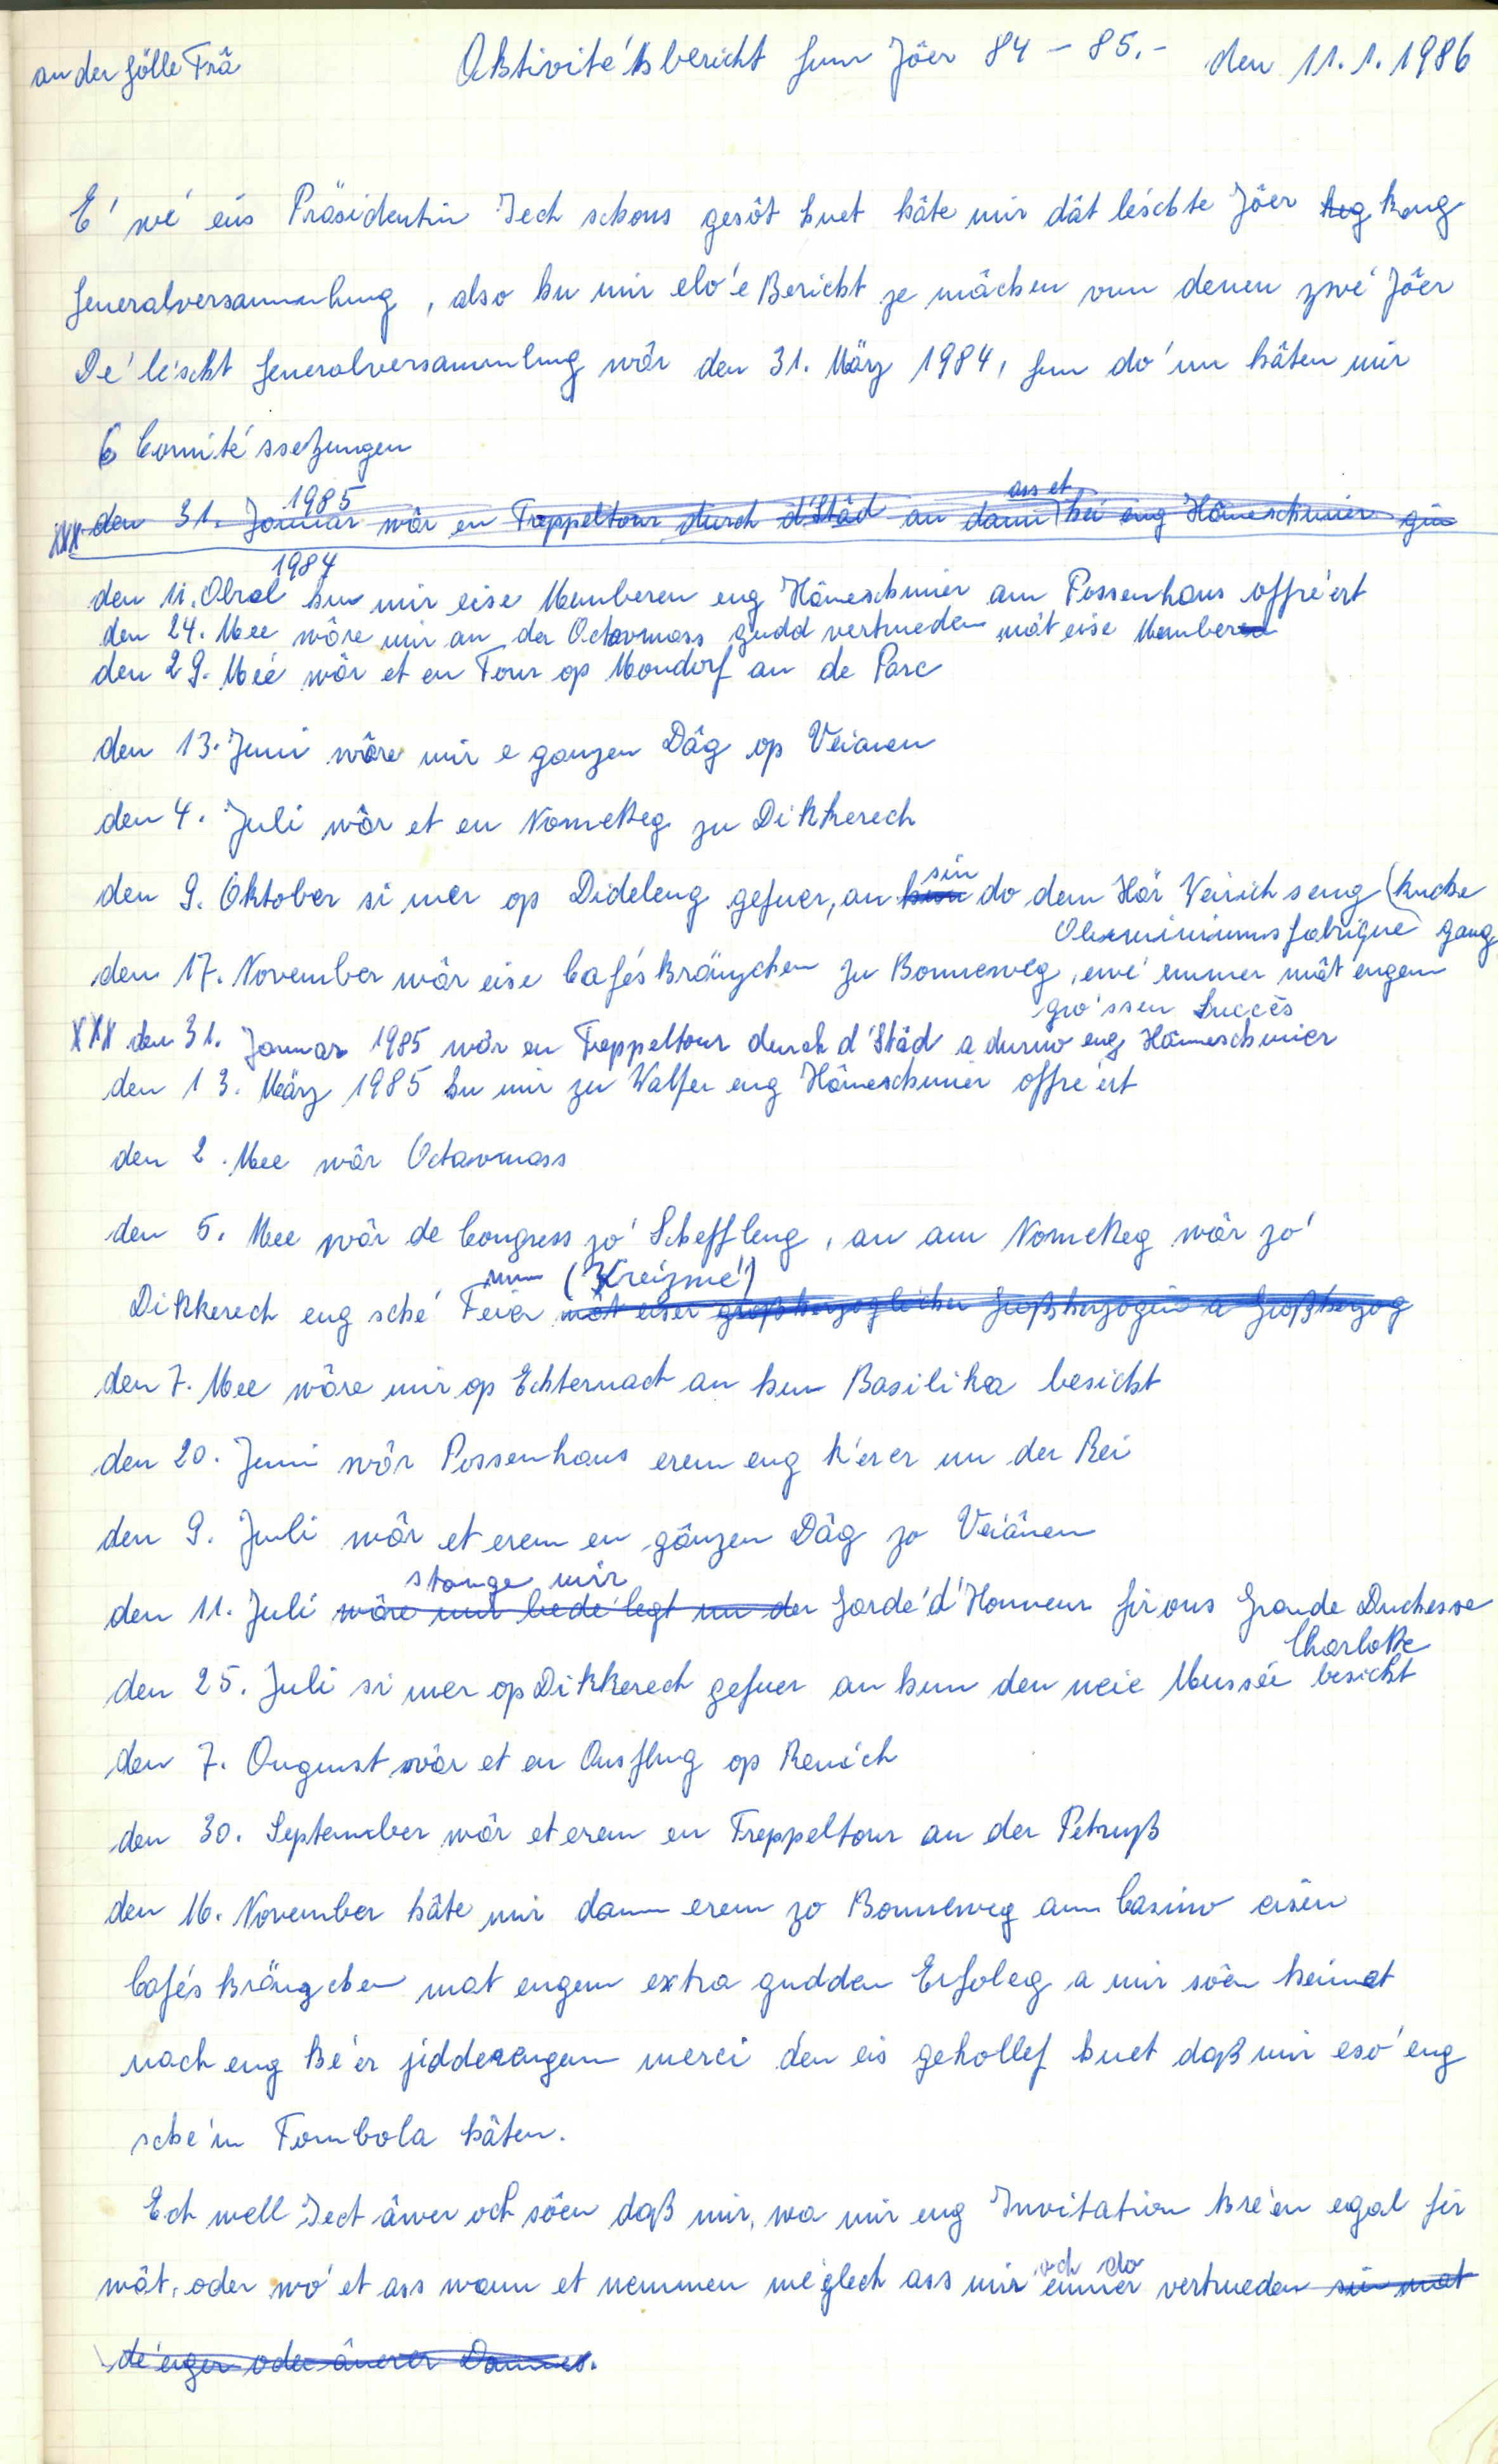 an der gölle Frâ
Aktivité'tsbericht fum Jôer 84 - 85.- den 11.1.1986
E' wé eis Präsidentin Iech schons gesôt huet hâte mir dât léschte Jôer keg keng
Generalversammlung, also hu mir elo' e Bericht ze mâchen vun denen zwé Jôer
De' le'scht Generalversammlung wôr den 31. März 1984, fun do' un hâten mir
6 Comité'ssetzungen
1985 ass et
XXX den 31. Januar wôr en Treppeltour durch d'Stâd an dann bei eng Hameschmier gin
1984
den 11. Abrel hu mir eise Memberen eng Hameschmier am Possenhaus offre'ert
den 24. Mee wôre mir an der Octavmass gudd vertrueden mât eise Memberen
den 29. Mee wôr et en Tour op Mondorf an de Parc
den 13. Juni wôre mir e ganzen Dâg op Veianen
den 4. Juli wôr et en Nometteg zu Dikkerech
sin
den 9. Oktober si mer op Dideleng gefuer, an hun do dem Här Veirich seng (Kucke
Aluminiumsfabrique) gang
den 17. November wôr eise Cafés kränzchen zu Bonneweg, ewé emmer mât engem
gro'ssen Succès
XXX den 31. Januar 1985 wôr en Treppeltour durch d'Stâd a durno eng Hameschmier
den 13. März 1985 hu mir zu Walfer eng Hameschmier offre'ert
den 2. Mee wôr Octavmass
den 5. Mee wôr de Congress zo' Scheffleng, an am Nometteg wôr zo'
vum (Kreizwé)
Dikkerech eng sché Feier mât eiser großherzoglicher Großherzogin a Großherzog
den 7. Mee wôre mir op Echternach an hun Basilika besicht
den 20. Juni wôr Possenhaus erem eng ké'er er un der Rei
den 9. Juli wôr et erem en gânzen Dâg zo Veiânen
stonge mir
den 11. Juli wôre mir bedélegt un der Garde'd'Honneur fir ons Grande Duchesse
Charlotte
den 25. Juli si mer op Dikkerech gefuer an hun den neie Mussée besicht
den 7. August wôr et en Ausflug op Remich
den 30. September wôr et erem en Treppeltour an der Petruß
den 16. November hâte mir dann erem zo Bonneweg am Casino eisen
Cafés kränzchen mat engem extra gudden Erfoleg a mir sôen heimat
nach eng ké'er jidderengem merci dén eis gehollef huet daß mir eso' eng
sche'in Tombola hâten.
Ech well Iech âwer och sôen daß mir, wa mir eng Invitation kre'en egal fir
och do
wât, oder wo' et ass wann et nemmen me'glech ass mir emmer vertrueden sin mat
de enger oder ânerer Dammes.